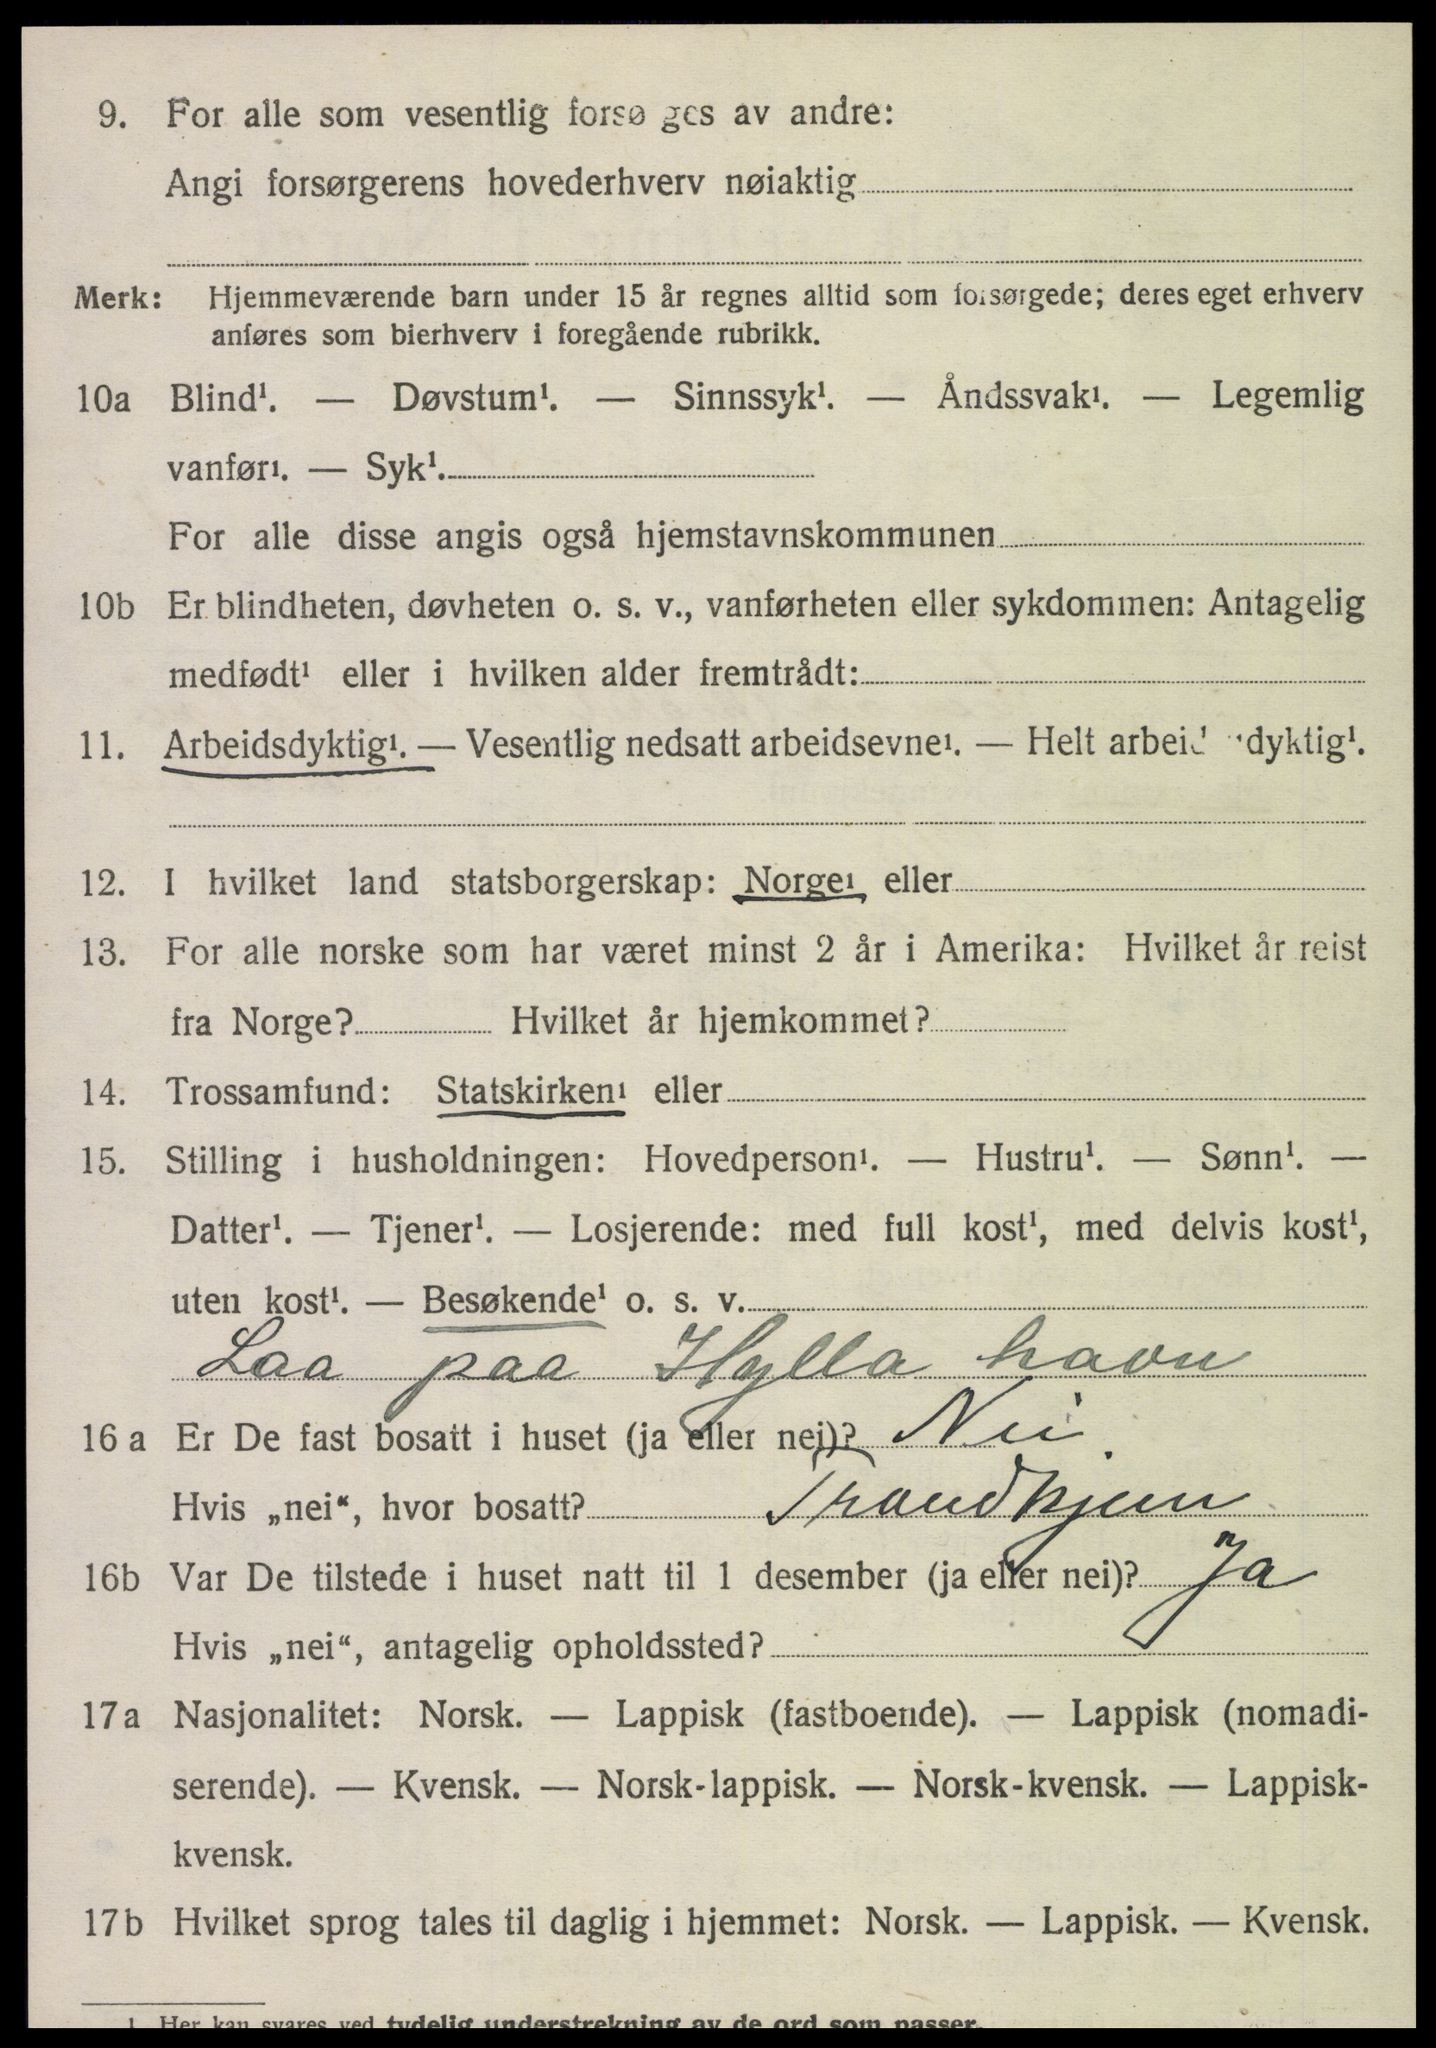 9. For alle som vesentlig forsø ges av andre:
Angi forsørgerens hovederhverv nøiaktig
Merk: Hjemmeværende barn under 15 år regnes alltid som forsørgede; deres eget erhverv
anføres som bierhverv i foregående rubrikk.
10a Blind¹. — Døvstum¹. — Sinnssyk¹. — Åndssvak¹. — Legemlig
vanfør¹. — Syk¹.
For alle disse angis også hjemstavnskommunen
10b Er blindheten, døvheten o. s. v., vanførheten eller sykdommen: Antagelig
medfødt¹ eller i hvilken alder fremtrådt:
11. Arbeidsdyktig¹. — Vesentlig nedsatt arbeidsevne¹. — Helt arbeid udyktig¹.
12. I hvilket land statsborgerskap: Norge¹ eller
13. For alle norske som har været minst 2 år i Amerika: Hvilket år reist
fra Norge? Hvilket år hjemkommet?
14. Trossamfund: Statskirken¹ eller
15. Stilling i husholdningen: Hovedperson¹. — Hustru¹. — Sønn¹. —
Datter¹. — Tjener¹. — Losjerende: med full kost¹, med delvis kost¹,
uten kost¹. — Besøkende¹ o. s. v.
Laa paa Hylla havn
16 a Er De fast bosatt i huset (ja eller nei)? Nei
Hvis „nei“, hvor bosatt? Trondhjem
16b Var De tilstede i huset natt til 1 desember (ja eller nei)? Ja
Hvis „nei“, antagelig opholdssted?
17 a Nasjonalitet: Norsk. — Lappisk (fastboende). — Lappisk (nomadi-
serende). — Kvensk. — Norsk-lappisk. — Norsk-kvensk. — Lappisk-
kvensk.
17 b Hvilket sprog tales til daglig i hjemmet: Norsk. — Lappisk. — Kvensk.
1 Her kan svares ved tydelig understrekning av de ord som passer.